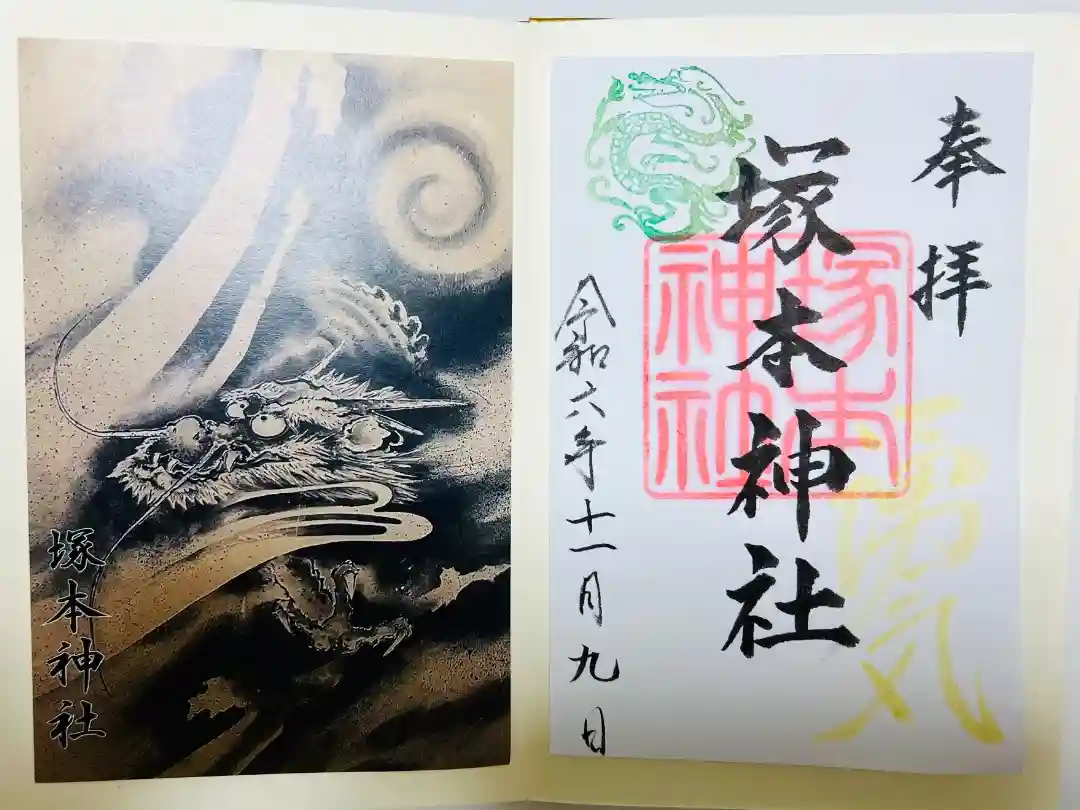 奉拝
塚本神社
塚本
神社
勇気
令和六年十一月九日
塚本神社